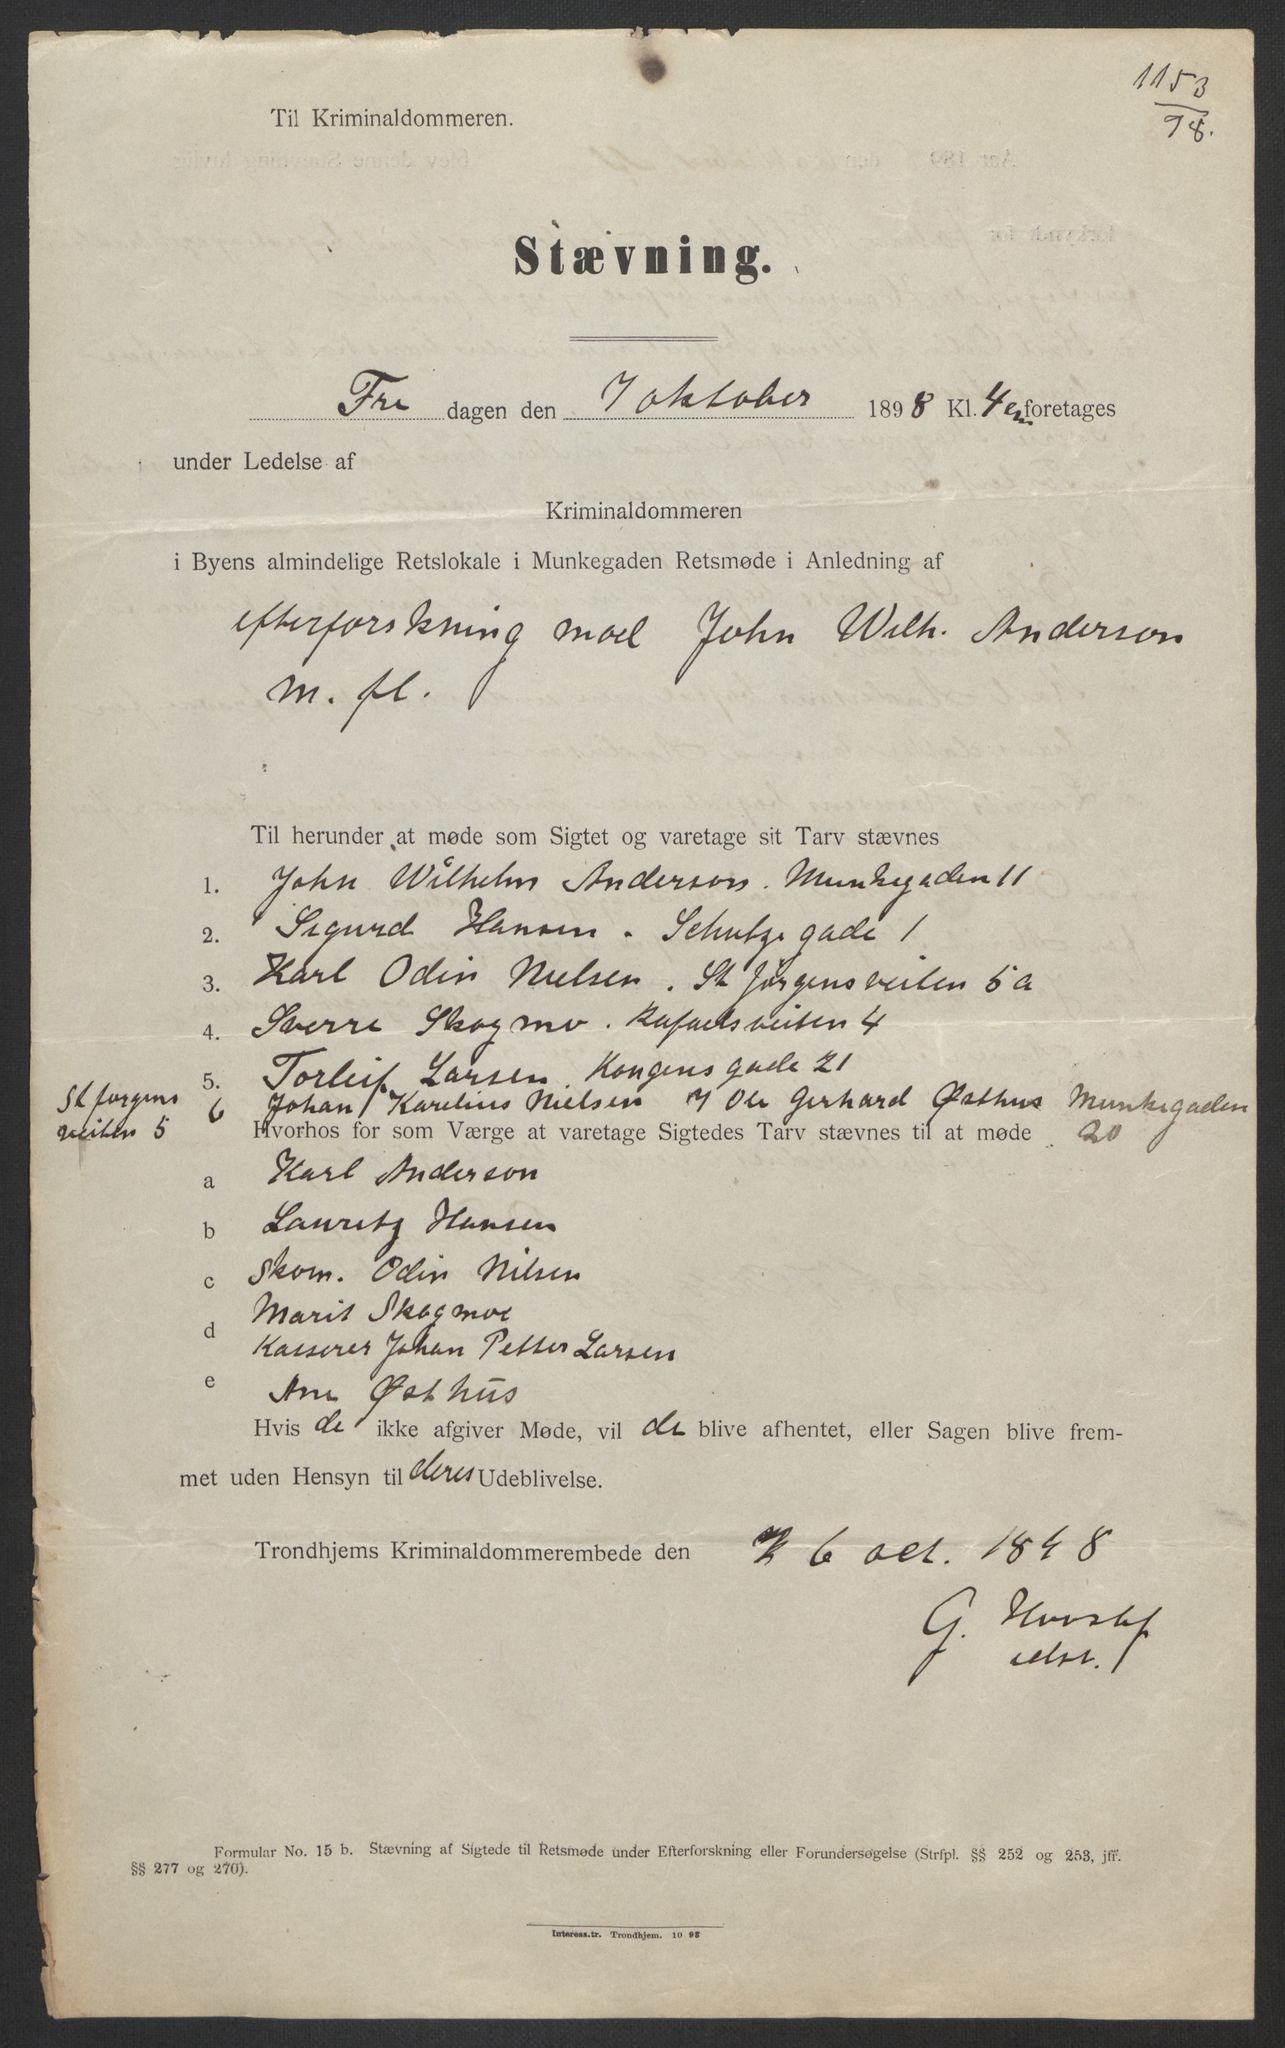 1153
98.
Til Kriminaldommeren.
Stævning.
Fre dagen den 7 oktober 1898 Kl. 4 em foretages
under Ledelse af
Kriminaldommeren
i Byens almindelige Retslokale i Munkegaden Retsmøde i Anledning af
efterforskning mod John Wilh. Anderson
m. fl.
Til herunder at møde som Sigtet og varetage sit Tarv stævnes
1. John Wilhelm Anderson. Munkegaden 11
2. Sigurd Hansen. Schultzgade 1
3. Karl Odin Nielsen. St Jørgensveiten 5a
4. Sverre Skogmo. Rafaelsveiten 4
5. Torleif Larsen. Kongensgade 21
St Jørgens
veiten 5
6 Johan Karelius Nielsen 7 Ole Gerhard Østhus Munkegaden
20
Hvorhos for som Værge at varetage Sigtedes Tarv stævnes til at møde
a Karl Anderson
b Lauritz Hansen
c Skom. Odin Nilsen
d Marit Skogmoe
Kasserer Johan Petter Larsen
e Ane Østhus
Hvis de ikke afgiver Møde, vil de blive afhentet, eller Sagen blive frem-
met uden Hensyn til deres Udeblivelse.
Trondhjems Kriminaldommerembede den 6 oct. 1898
G.
Formular No. 15 b. Stævning af Sigtede til Retsmøde under Efterforskning eller Forundersøgelse (Strfpl. §§ 252 og 253, jfr.
§§ 277 og 270).
Interess.tr. Trondhjem. 10 95